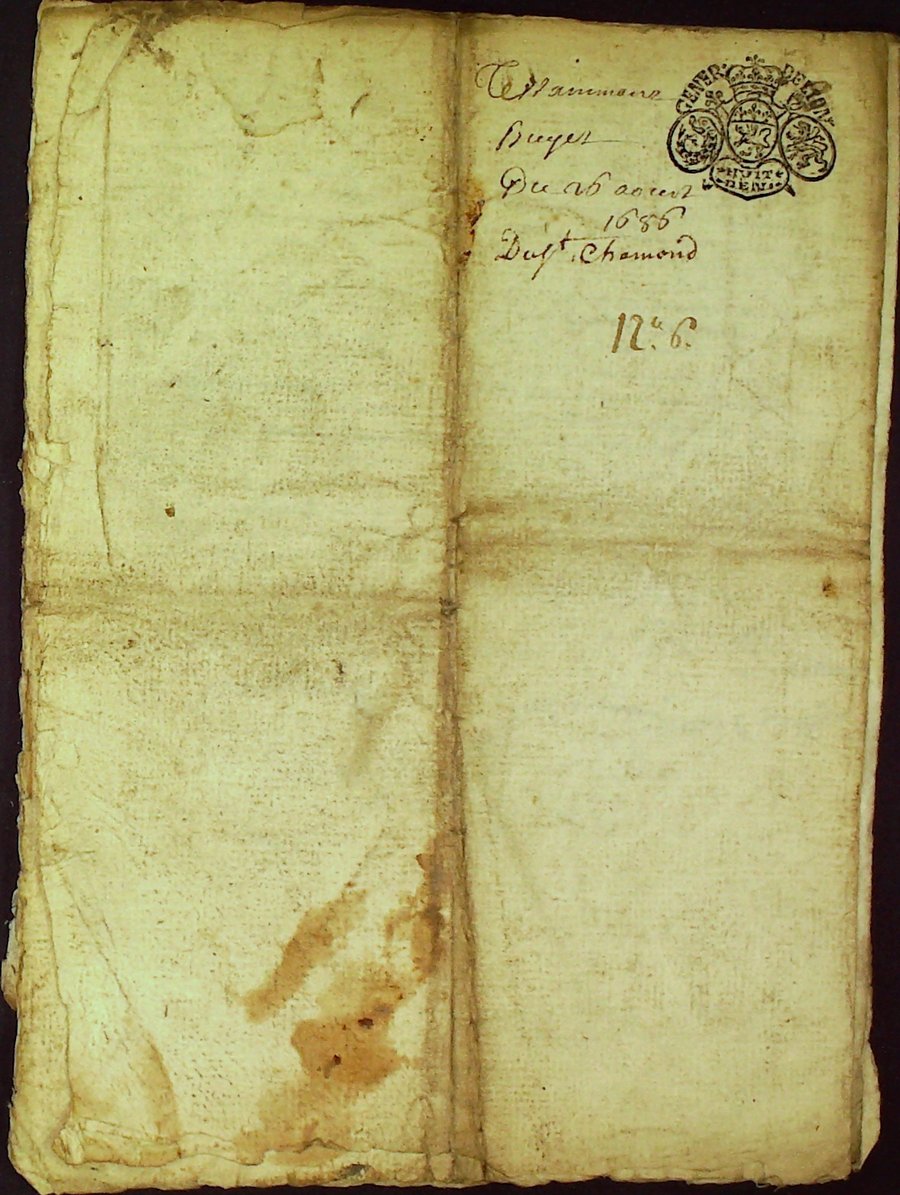 Testammant
Buyet
Du 26 aoust
1686
De St Chamond
12# 6.
GENER DE LION
HUIT
DEN